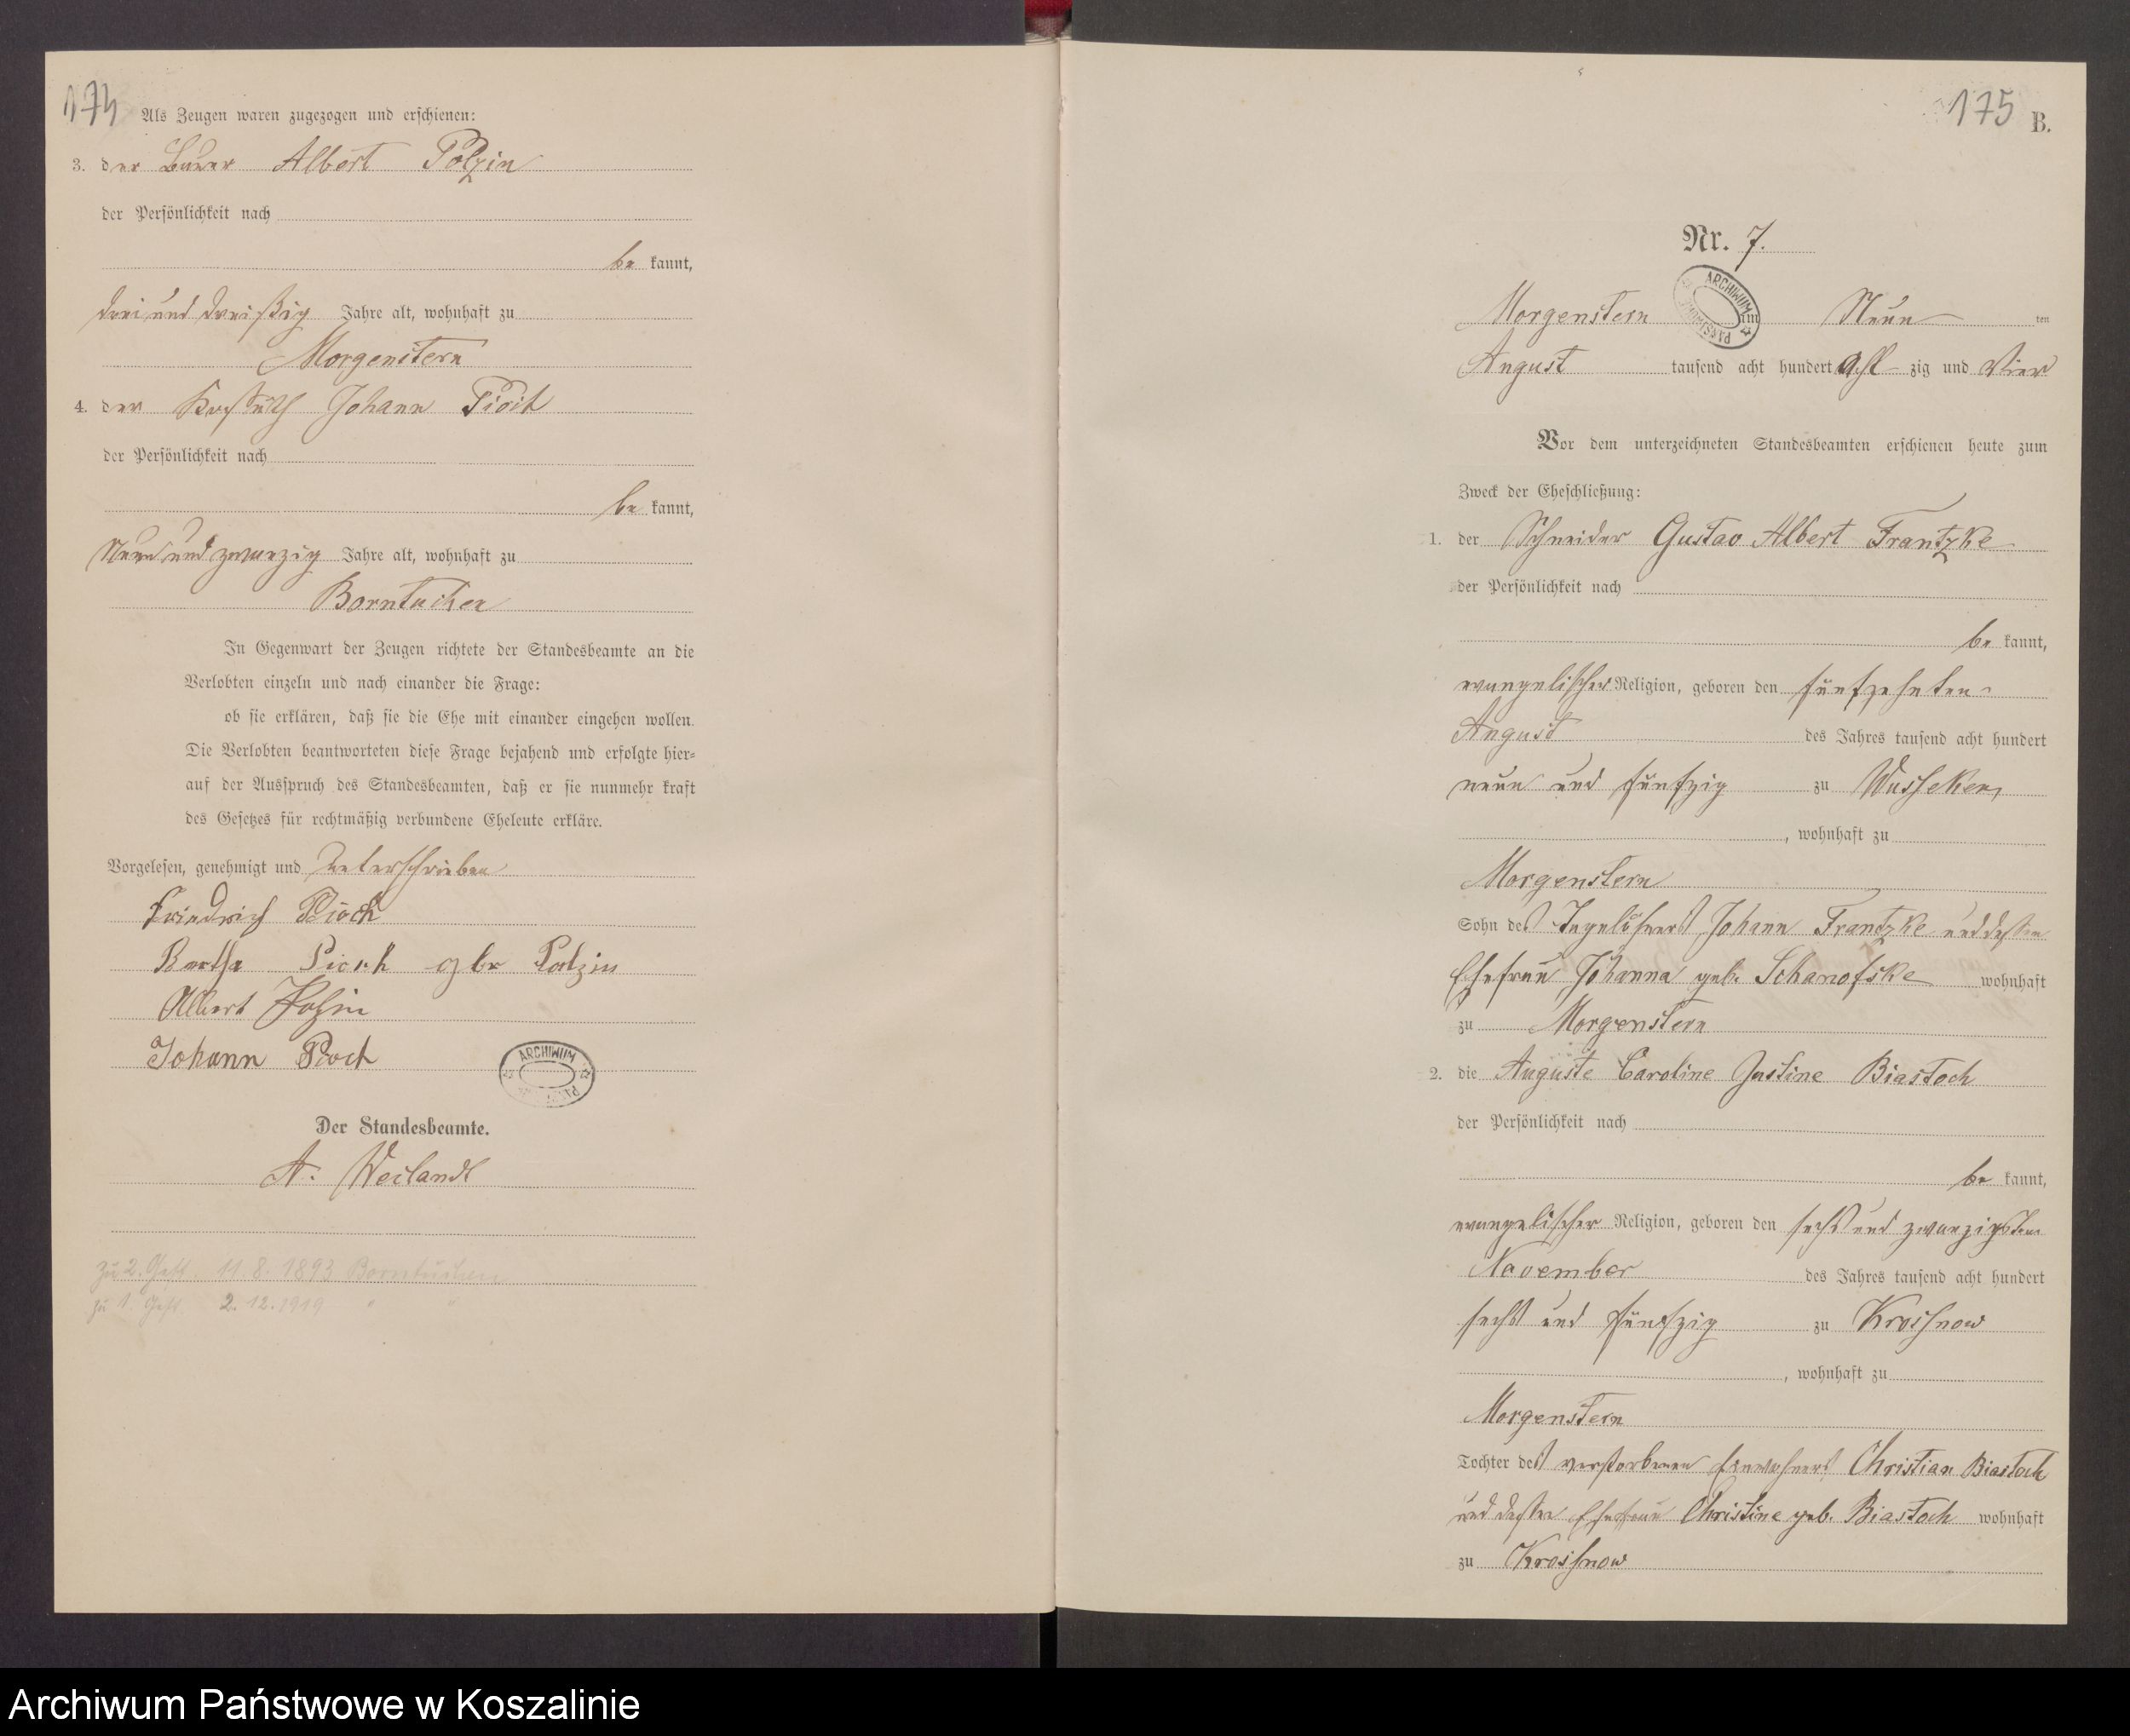 174
Als Zeugen waren zugezogen und erschienen:
3. der Bauer Albert Polzin
der Persönlichkeit nach
be kannt,
drei und dreißig Jahre alt, wohnhaft zu
Morgenstern
4. der Johann Pioch
der Persönlichkeit nach
be kannt,
Neun und zwanzig Jahre alt, wohnhaft zu
Borntuchen
In Gegenwart der Zeugen richtete der Standesbeamte an die
Verlobten einzeln und nach einander die Frage:
ob sie erklären, daß sie die Ehe mit einander eingehen wollen.
Die Verlobten beantworteten diese Frage bejahend und erfolgte hier-
auf der Ausspruch des Standesbeamten, daß er sie nunmehr kraft
des Gesetzes für rechtmäßig verbundene Eheleute erkläre.
Vorgelesen, genehmigt und unterschrieben
Friedrich Pioch
Bertha Pioch gbr Polzin
Albert Polzin
Johann Pioch
ARCHIWUM
Der Standesbeamte.
A. Weilandt
zu 2. Gest. 11.8.1893 Borntuchen
zu 1. Gest. 2.12.1919 " "
175 B.
Nr. 7.
ARCHIWUM PAŃSTWOWE
Morgenstern am Neun ten
August tausend acht hundert acht zig und Vier
Vor dem unterzeichneten Standesbeamten erschienen heute zum
Zweck der Eheschließung:
1. der Schneider Gustav Albert Frantzke
der Persönlichkeit nach
be kannt,
evangelischer Religion, geboren den fünfzehnten
August des Jahres tausend acht hundert
neun und fünfzig zu Wusseken
, wohnhaft zu
Morgenstern
Sohn des Tagelöhners Johann Frantzke und dessen
Ehefrau Johanna geb. Schanofske wohnhaft
zu Morgenstern
2. die Auguste Caroline Justine Biastoch
der Persönlichkeit nach
be kannt,
evangelischer Religion, geboren den sechs und zwanzigsten
November des Jahres tausend acht hundert
sechs und fünfzig zu Krossnow
, wohnhaft zu
Morgenstern
Tochter des verstorbenen Einwohners Christian Biastoch
und dessen Ehefrau Christine geb. Biastoch wohnhaft
zu Krossnow
Archiwum Państwowe w Koszalinie